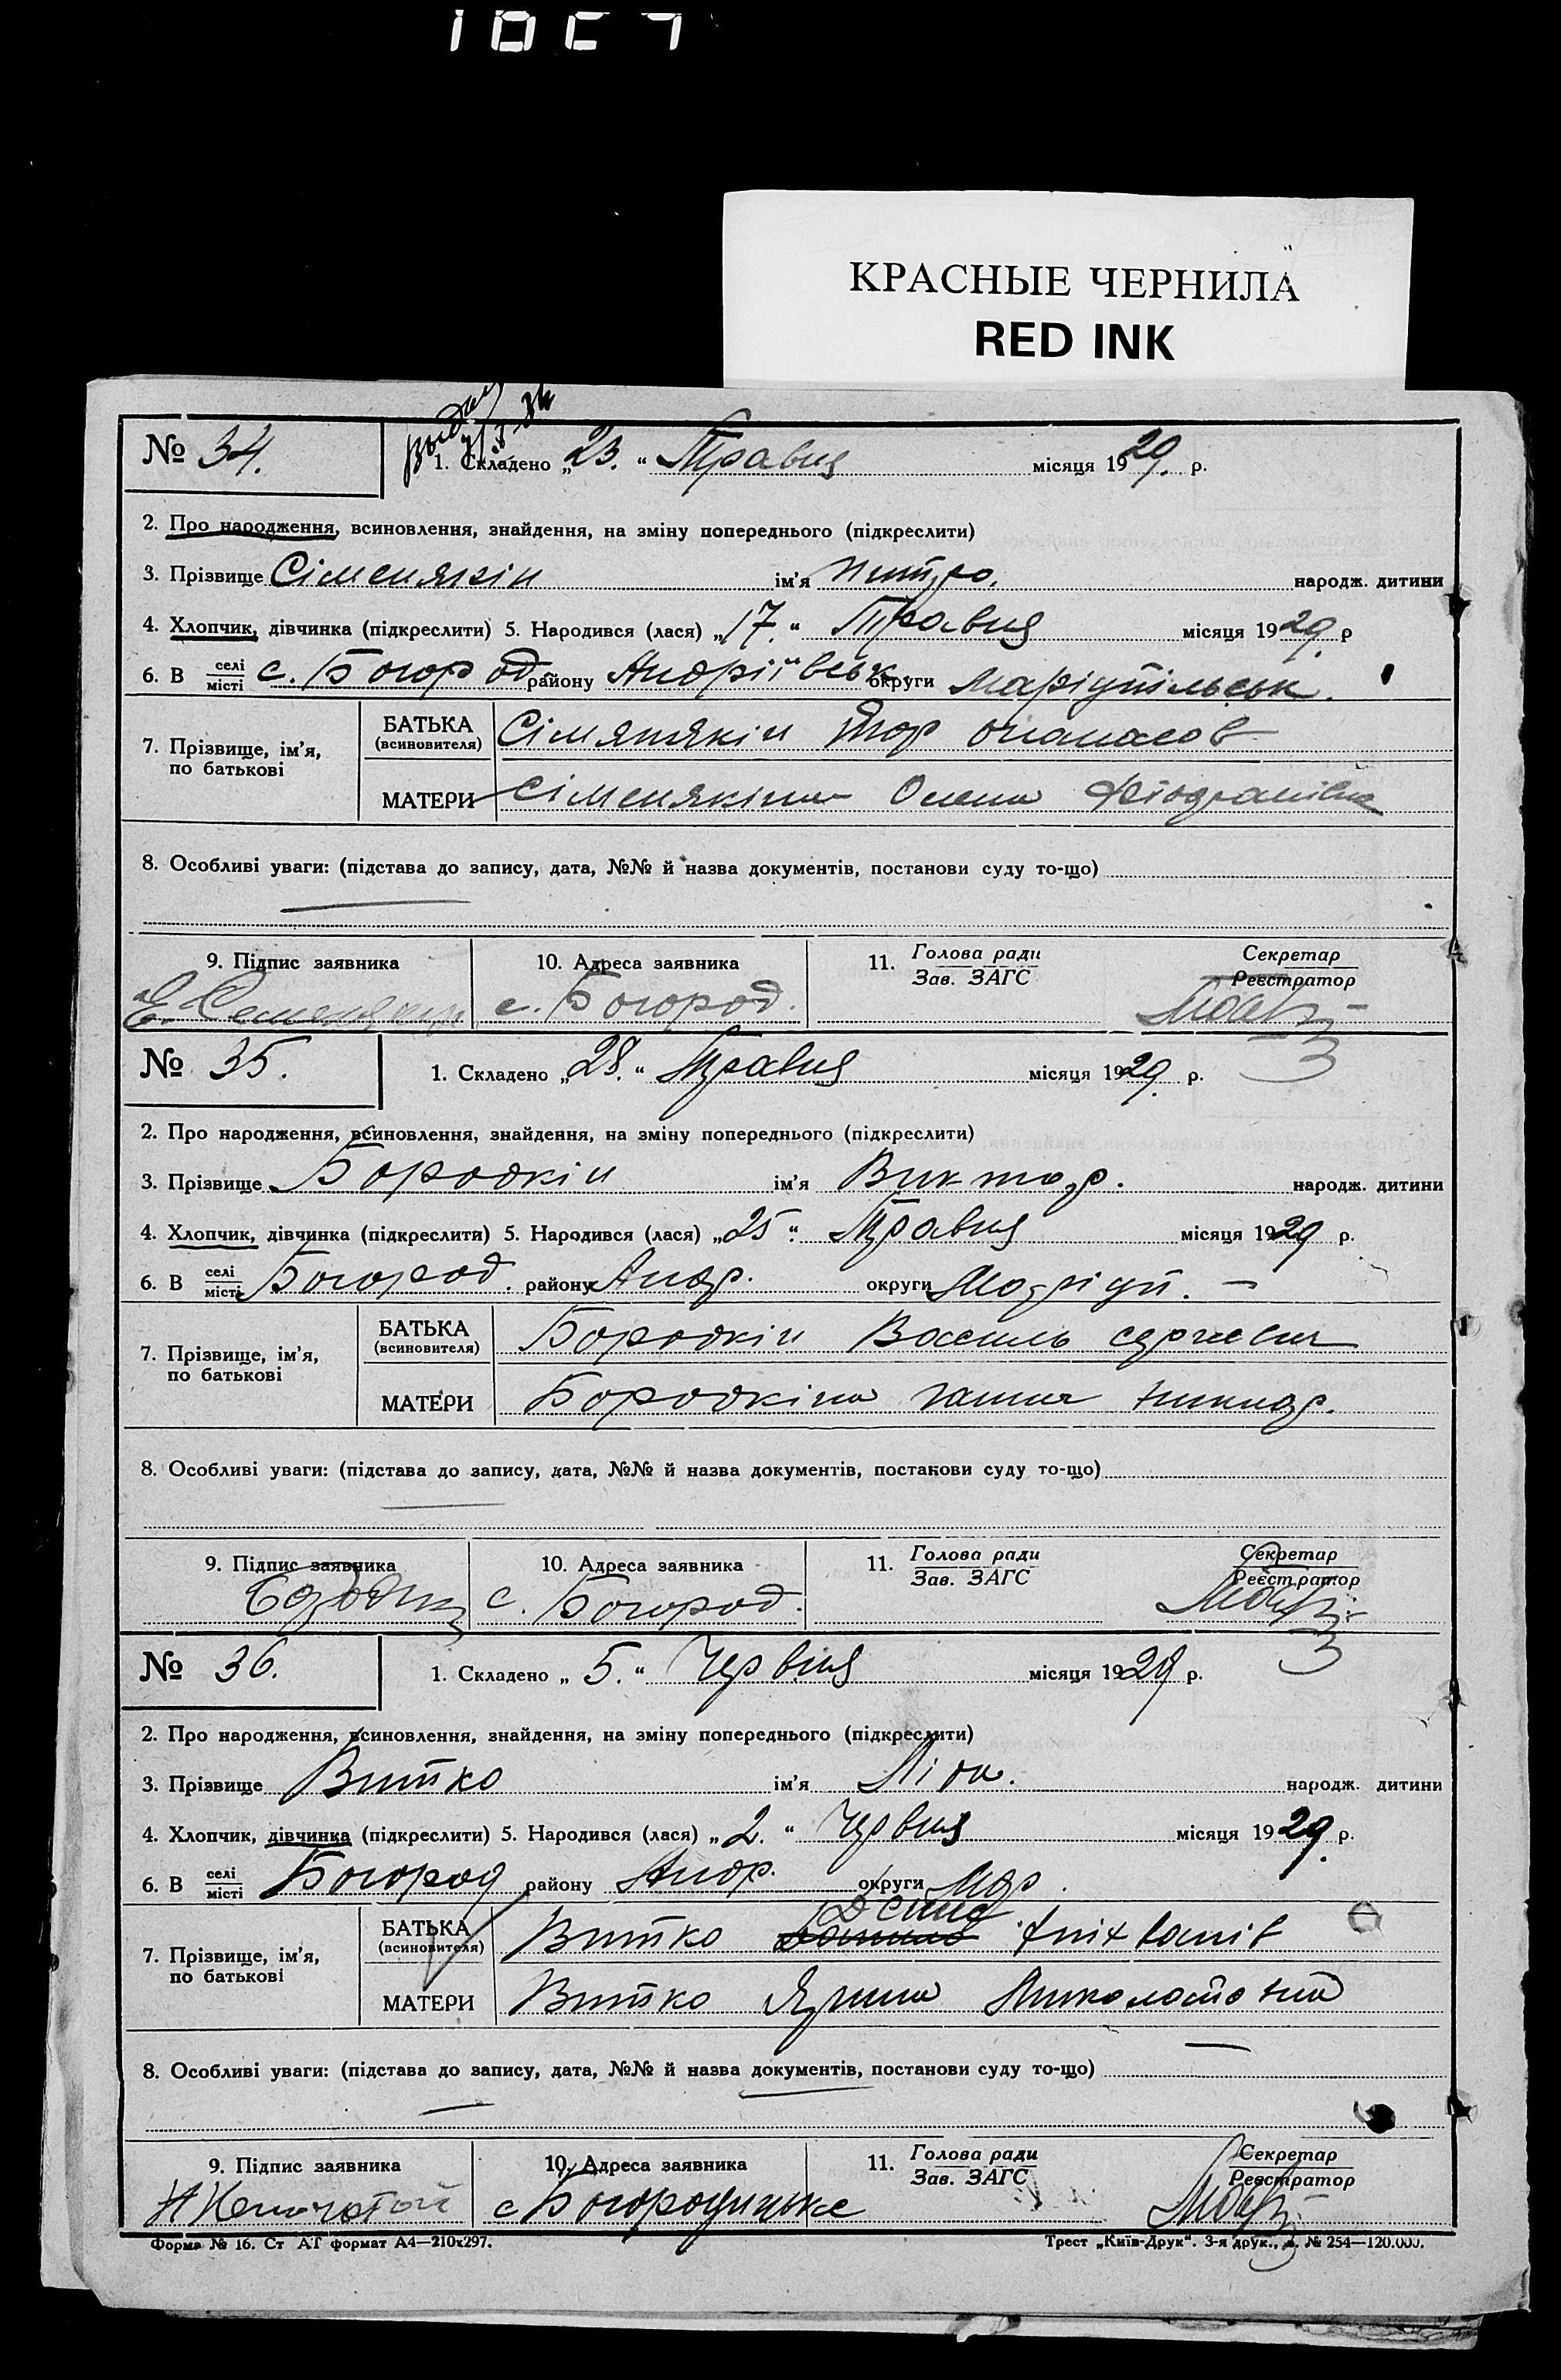 КРАСНЫЕ ЧЕРНИЛА
RED INK
№ 34. 1. Складено „23.“ Травня місяця 1929. р.
2. Про народження, всиновлення, знайдення, на зміну попереднього (підкреслити)
3. Прізвище Сіменякін ім'я народж. дитини
4. Хлопчик, дівчинка (підкреслити) 5. Народився (лася) „17.“ Травня місяця 1929. р
6. В селі місті с. Богород району Андріївськ. округи Маріупільськ.
БАТЬКА (всиновителя) Сімянякін Ягор
7. Прізвище, ім'я, по батькові
МАТЕРИ Сіменякіна Олена
8. Особливі уваги: (підстава до запису, дата, №№ й назва документів, постанови суду то-що)
9. Підпис заявника 10. Адреса заявника 11. Голова ради Зав. ЗАГС Секретар Реєстратор
с. Богород.
№ 35. 1. Складено „28.“ Травня місяця 1929. р.
2. Про народження, всиновлення, знайдення, на зміну попереднього (підкреслити)
3. Прізвище Бородкін ім'я Виктор. народж. дитини
4. Хлопчик, дівчинка (підкреслити) 5. Народився (лася) „25“. Травня місяця 1929 р.
6. В селі місті Богород. району Андр. округи Маріуп.
БАТЬКА (всиновителя) Бородкін Василь
7. Прізвище, ім'я, по батькові
МАТЕРИ Бородкіна Ганна
8. Особливі уваги: (підстава до запису, дата, №№ й назва документів, постанови суду то-що)
9. Підпис заявника 10. Адреса заявника 11. Голова ради Зав. ЗАГС Секретар Реєстратор
с. Богород.
№ 36. 1. Складено „5.“ Червня місяця 1929 р.
2. Про народження, всиновлення, знайдення, на зміну попереднього (підкреслити)
3. Прізвище Витко ім'я народж. дитини
4. Хлопчик, дівчинка (підкреслити) 5. Народився (лася) „2.“ Червня місяця 1929. р.
6. В селі місті Богород району Андр. округи Мар.
БАТЬКА (всиновителя) Витко
7. Прізвище, ім'я, по батькові
МАТЕРИ Витко Ярина
8. Особливі уваги: (підстава до запису, дата, №№ й назва документів, постанови суду то-що)
9. Підпис заявника 10. Адреса заявника 11. Голова ради Зав. ЗАГС Секретар Реєстратор
с Богородицьке
Форма № 16. Ст АТ формат А4—210х297. Трест „Київ-Друк“. 3-я друк., з. № 254—120.000.